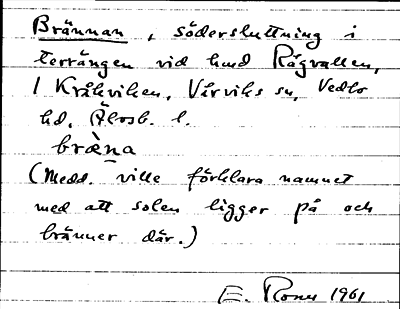 Brännan, södersluttning i
terrängen vid hmd Rågvallen,
1 Kråkviken, Vårviks sn, Vedbo
hd. Älvsb. l.
bræ̀na
(Medd. ville förklara namnet
med att solen ligger på och
bränner där.)
E. 1961